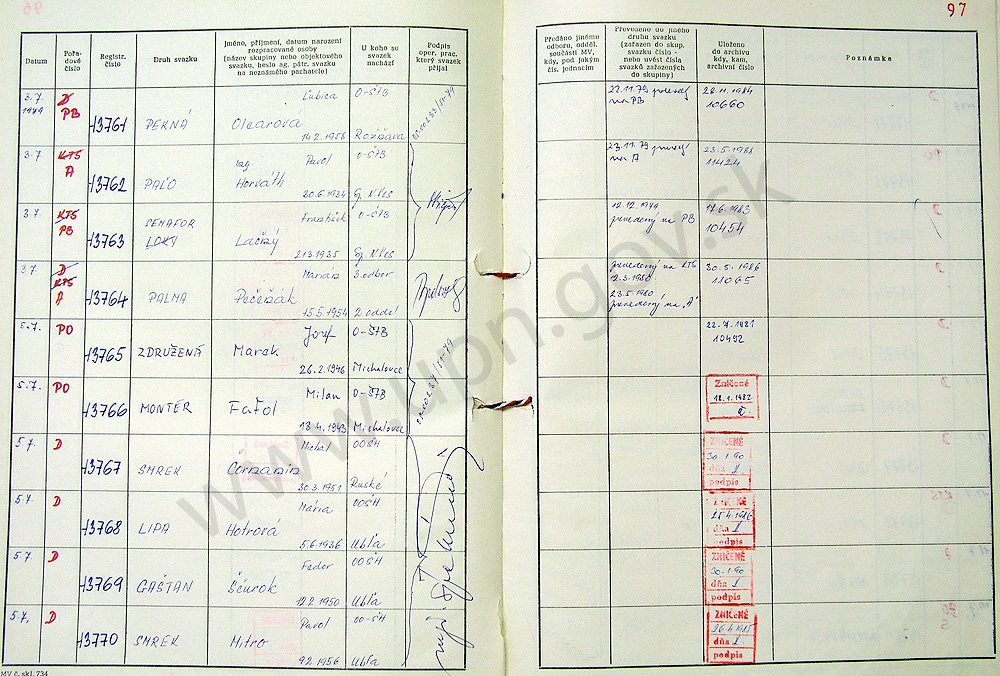 96
97
Datum
Pořadové číslo
Registr. číslo
Druh svazku
Jméno, příjmení, datum narození rozpracované osoby (název skupiny nebo objektového svazku, heslo ag. pátr. svazku na neznámého pachatele)
U koho se svazek nachází
Podpis oper. prac. který svazek přijal
Předáno jinému odboru, odděl. součásti MV, kdy, pod jakým čís. jednacím
Převedeno do jiného druhu svazku (zařazen do skup. svazku číslo - nebo uvést čísla svazků zařazených do skupiny)
Uloženo do archivu kdy, kam, archivní číslo
Poznámka
3.7. 1979 D PB 13761 PEKNÁ Ľubica Olearova 14.2.1956 O-ŠTB Rožňava 22.11.79 na PB 28.11.1984 10660
3.7 KTS A 13762 PAĽO Ing. Pavol Horváth 20.6.1934 O-ŠTB Sp. N. Ves 23.11.79 na A 23.5.1986 11424
3.7. KTS PB 13763 SEMAFOR František Lačný 21.3.1935 O-ŠTB Sp. N. Ves 12.12.1979 prevedený na PB 17.6.1983 10454
3.7. D KTS A 13764 PALMA Marian 15.5.1954 3.odbor 2.oddel prevedený na KTS 12.3.1980 23.5.1980 prevedený na "A" 30.5.1986 11065
5.7. PO 13765 ZDRUŽENÁ Jozef Marek 26.2.1946 O-ŠTB Michalovce 10492
5.7. PO 13766 MONTÉR Milan Faťol 18.4.1943 O-ŠTB Michalovce Zničené 18.1.1982
5.7. D 13767 SMREK Michal 30.3.1951 OOSH Ruské ZNIČENÉ 30.1.90 dňa podpis
5.7. D 13768 LIPA Mária Hotrová 5.6.1936 OOSH Ubľa ZNIČENÉ dňa podpis
5.7. D 13769 GAŠTAN Fedor Ščurok 12.2.1950 OOSH Ubľa ZNIČENÉ 30.1.90 dňa podpis
5.7. D 13770 SMREK Pavol Mitro 9.2.1956 OO-SH Ubľa ZNIČENÉ dňa podpis
MV č. skl. 734
www.upn.gov.sk